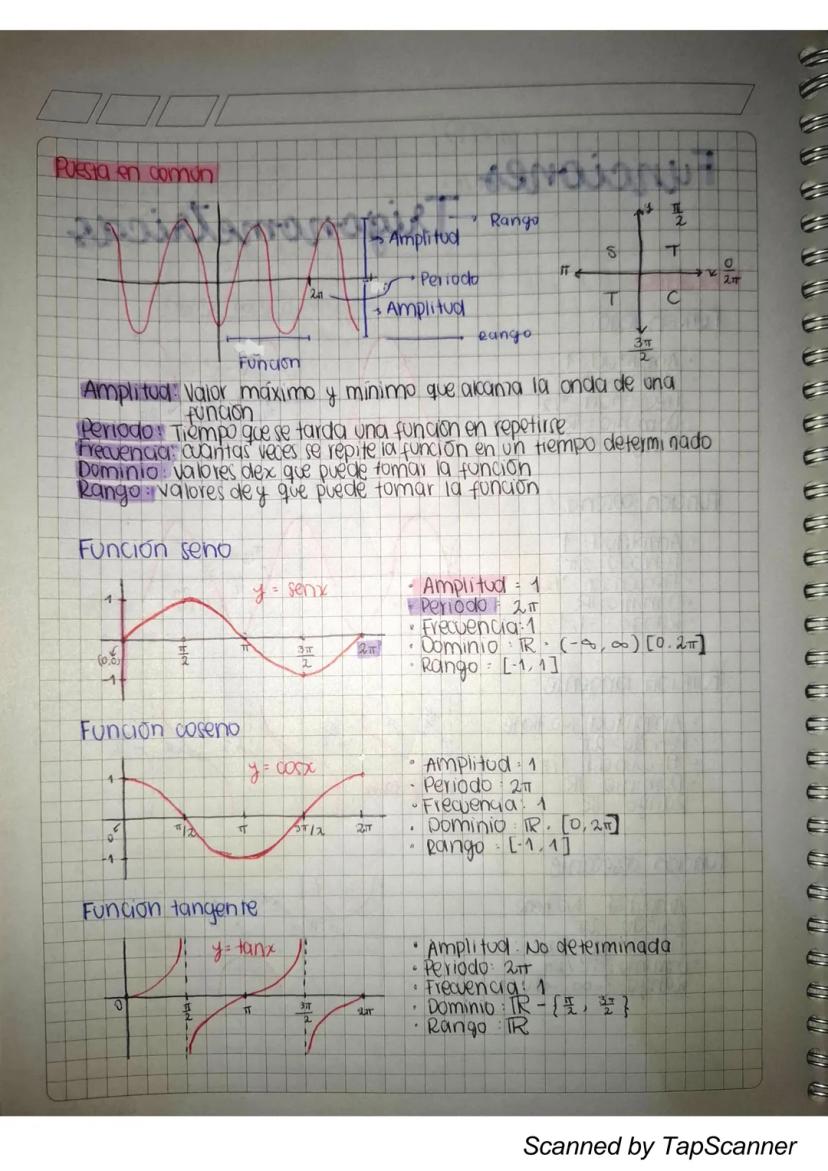 Puesta en común
Rango
Amplitud
Periodo
2π
Amplitud
Rango
Función
y π/2
S T
π x 0/2π
T C
3π/2
Amplitud: Valor máximo y mínimo que alcanza la onda de una
función
Periodo: Tiempo que se tarda una función en repetirse
Frecuencia: cuantas veces se repite la función en un tiempo determinado
Dominio: valores de x que puede tomar la función
Rango: valores de y que puede tomar la función
Función seno
y = senx
1
(0,0) π/2 π 3π/2 2π
-1
· Amplitud = 1
· Periodo: 2π
· Frecuencia: 1
· Dominio: ℝ · (-∞, ∞) [0. 2π]
· Rango = [-1, 1]
Función coseno
y = cosx
1
0 π/2 π 3π/2 2π
-1
· Amplitud: 1
· Periodo: 2π
· Frecuencia: 1
· Dominio: ℝ. [0, 2π]
· Rango = [-1, 1]
Función tangente
y = tanx
0 π/2 π 3π/2 2π
· Amplitud: No determinada
· Periodo: 2π
· Frecuencia: 1
· Dominio: ℝ - {π/2, 3π/2}
· Rango: ℝ
Funciones
Trigonometricas
Scanned by TapScanner